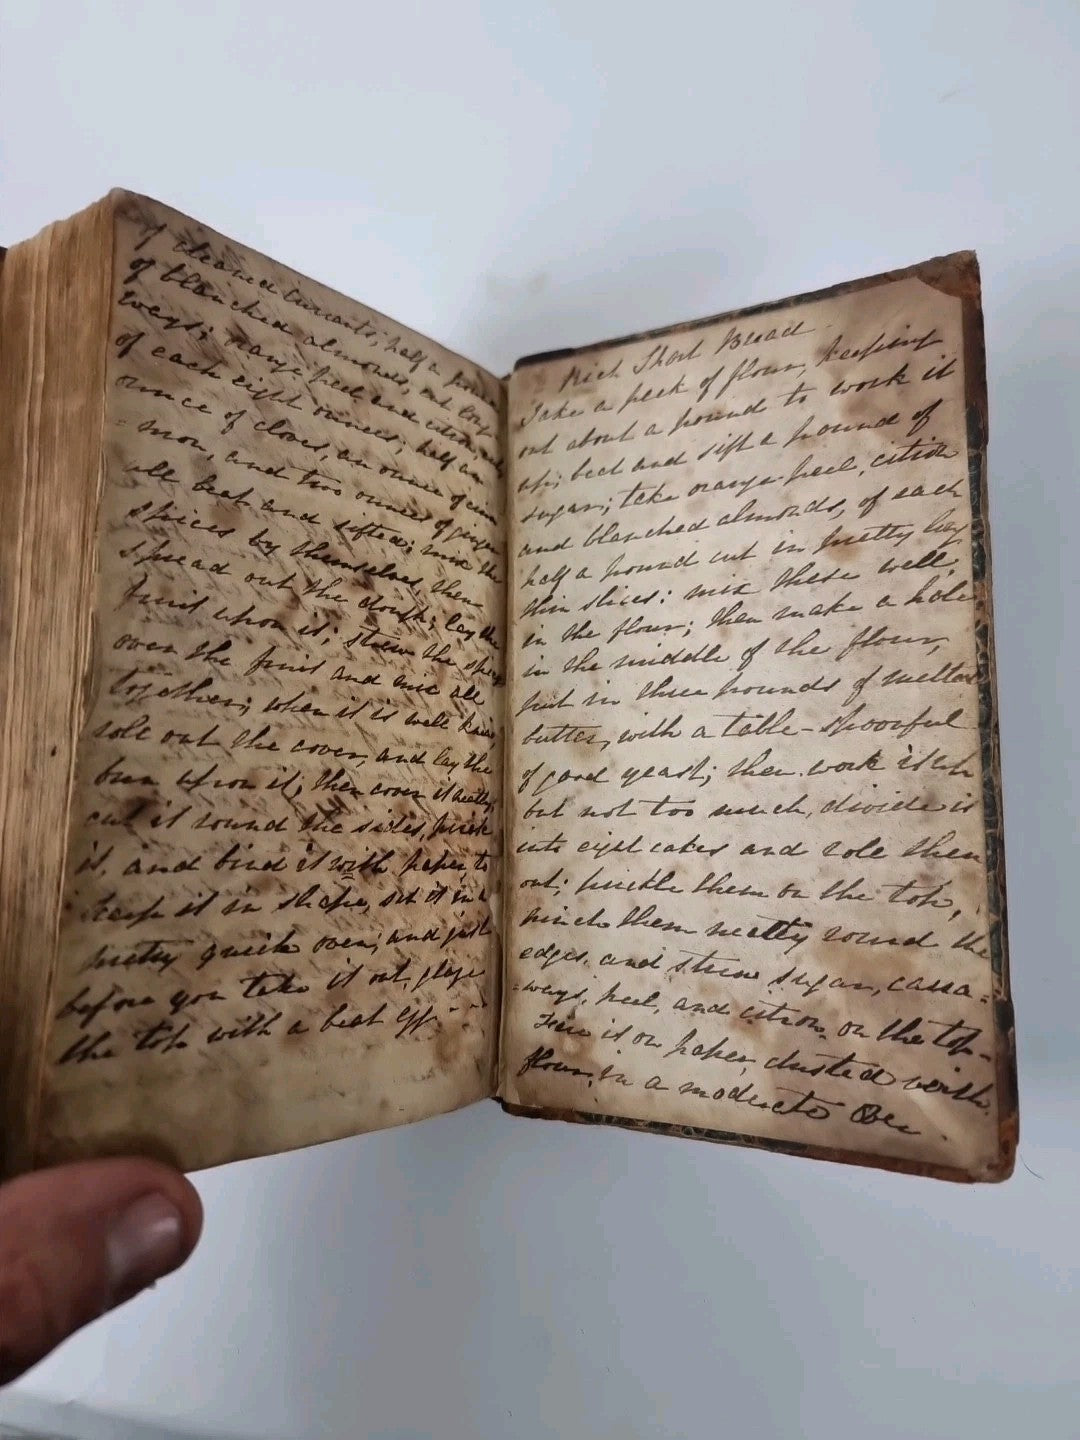 of cleaned Currants; half a pound
of blanched almonds, cut long-
ways; orange peel and citron, and
of each eight ounces; half an
ounce of cloves, an ounce of cinna
-mon, and two ounces of ginger
all beat and sifted; mix the
spices by themselves, then
spread out the dough; lay the
fruit upon it; strew the spices
over the fruit and mix all
together; when it is well
role out the cover, and lay the
bun upon it; then cover it neatly,
cut it round the sides, prick
it, and bind it with paper, to
keep it in shape, set it in a
pretty quick oven; and just
before you take it out, glaze
the top with a beat egg --
Rich Short Bread.
Take a peck of flour, keeping
out about a pound to work it
up; beat and sift a pound of
sugar; take orange peel, citron
and blanched almonds, of each
half a pound cut in pretty long
thin slices: mix these well,
in the flour; then make a hole
in the middle of the flour,
put in three pounds of melted
butter, with a table-spoonful
of good yeast; then work it up
but not too much, divide it
into eight cakes and role them
out; prickle them on the top,
pinch them neatly round the
edges, and strew sugar, carra=
=ways, peel, and citron, on the top-
Fire it on paper, dusted with
flour, in a moderate Oven.